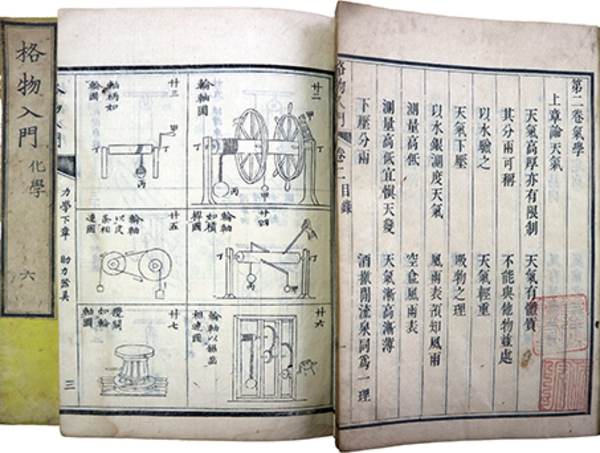 格物入門
化學
六
第二卷氣學
上章論天氣
天氣高厚亦有限制 天氣有體質
其分兩可稱 不能與他物並處
以水驗之 天氣輕重
天氣下壓 吸物之理
以水銀測度天氣 風雨表預知風雨
測量高低 空盒風雨表
測量高低宜慎天變 天氣漸高漸薄
下壓分兩 酒撤閒流泉同爲一理
格物入門 卷二目錄
廿二
輪軸圖
甲
丁
丁
丙
廿三
軸柄如輪圖
甲
丁
丁
丙
廿四
輪軸如槓桿圖
丁
丁
廿五
輪軸以皮條相連圖
廿六
輪軸以鋸齒相連圖
廿七
如輪軸圖
力學下章 助力器具
三